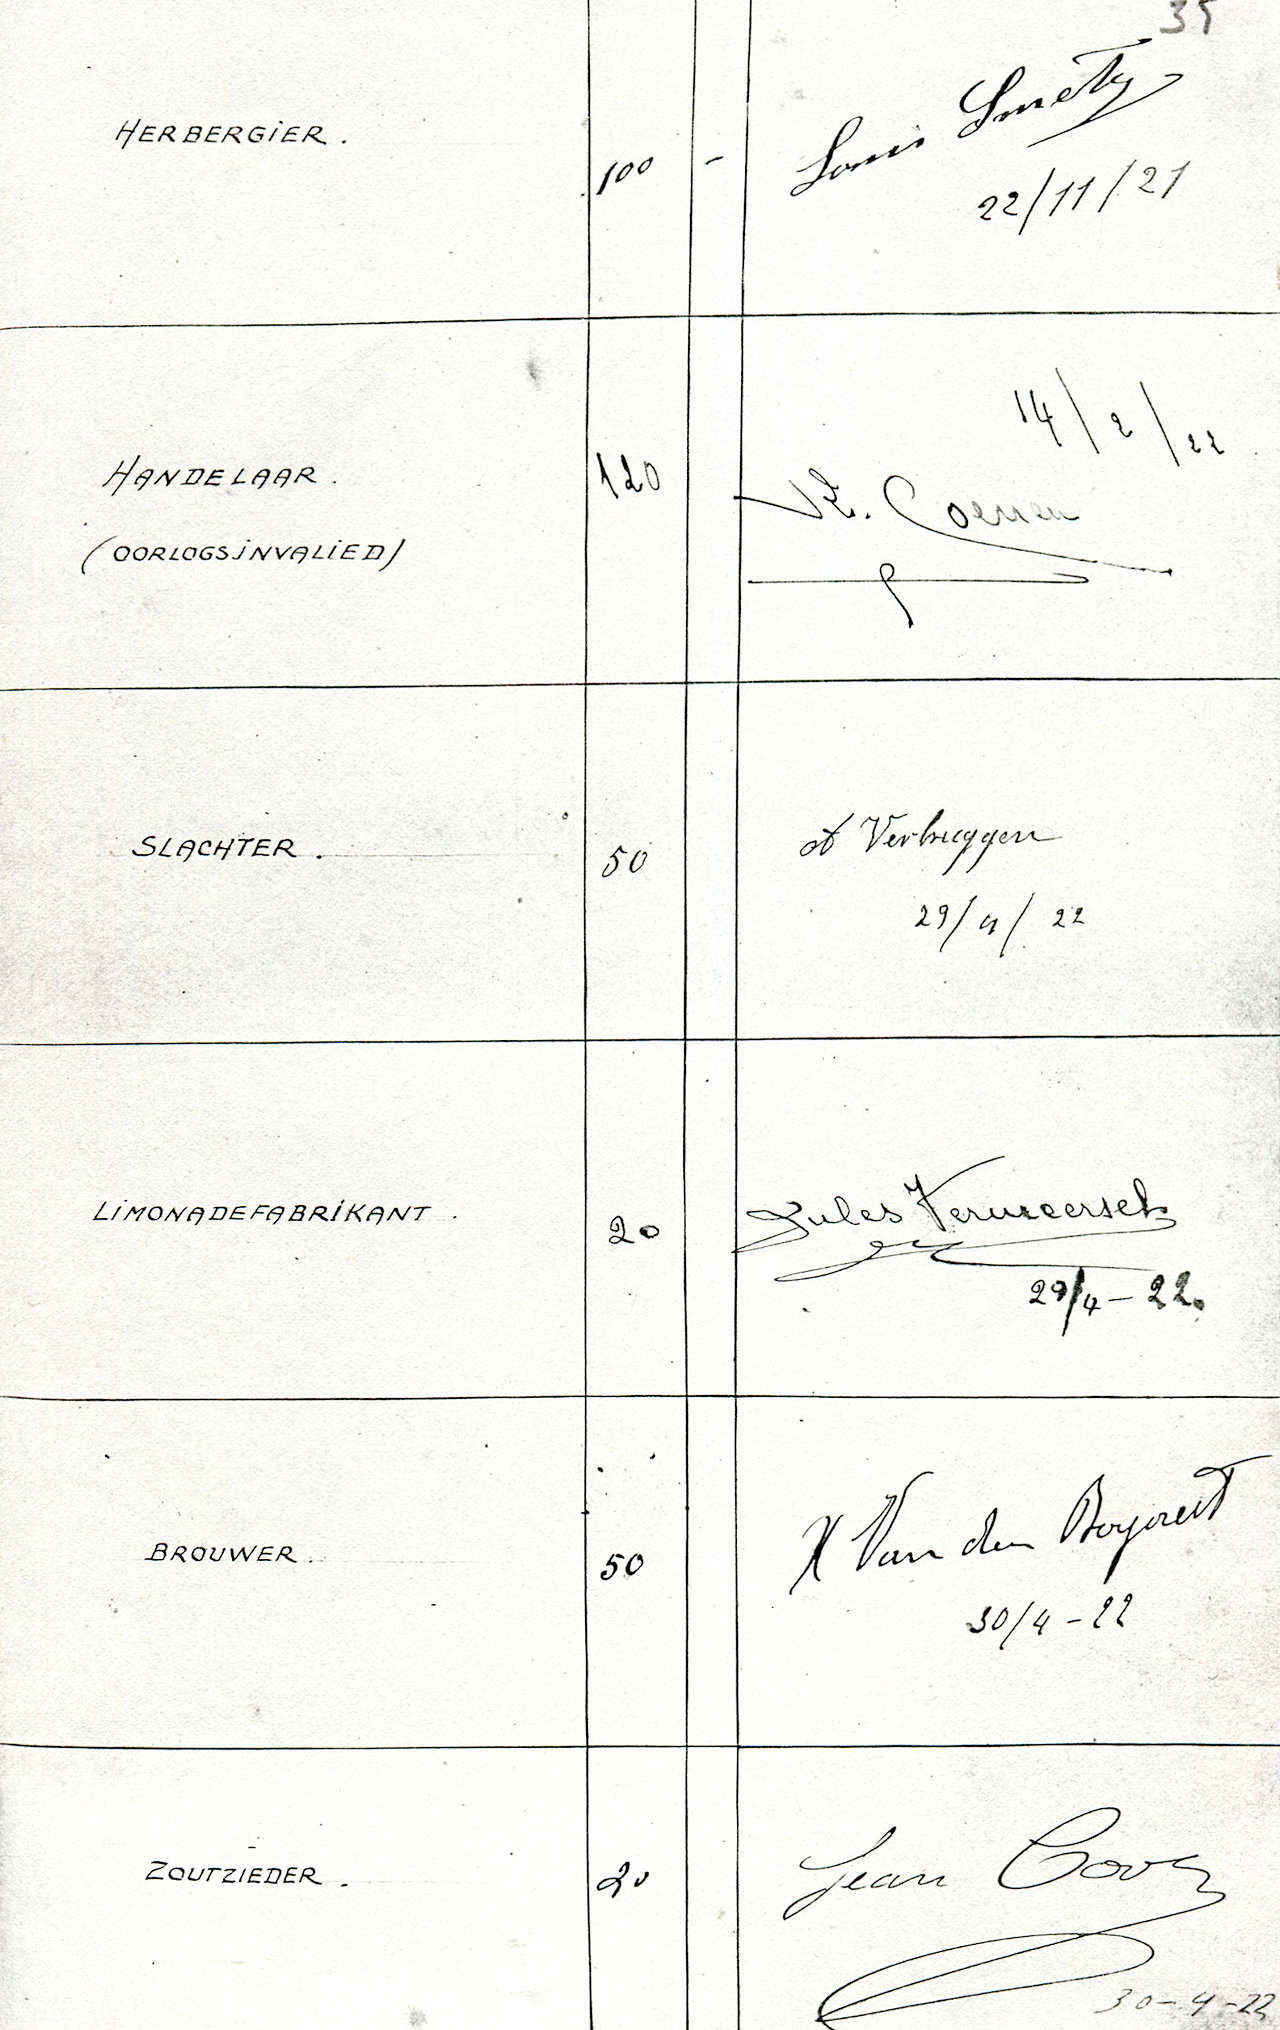 35
HERBERGIER. 100 - Louis Smets
22/11/21
14/2/22
HANDELAAR. 120 Coenen
(OORLOGSINVALIED)
SLACHTER. 50 A Verbruggen
29/4/22
LIMONADEFABRIKANT. 20 Jules Vermeersch
29/4-22.
BROUWER. 50 Van den Bogaert
30/4-22
ZOUTZIEDER. 20 Jean
30-4-22